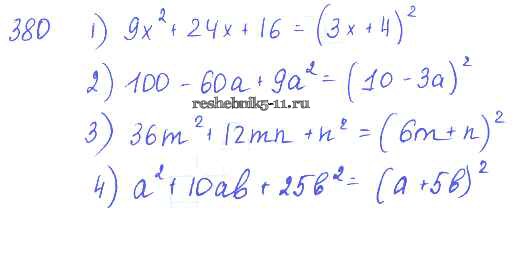 380 1) 9x² + 24x + 16 = (3x + 4)²
2) 100 - 60a + 9a² = (10 - 3a)²
reshebnik5-11.ru
3) 36m² + 12mn + n² = (6m + n)²
4) a² + 10ab + 25b² = (a + 5b)²